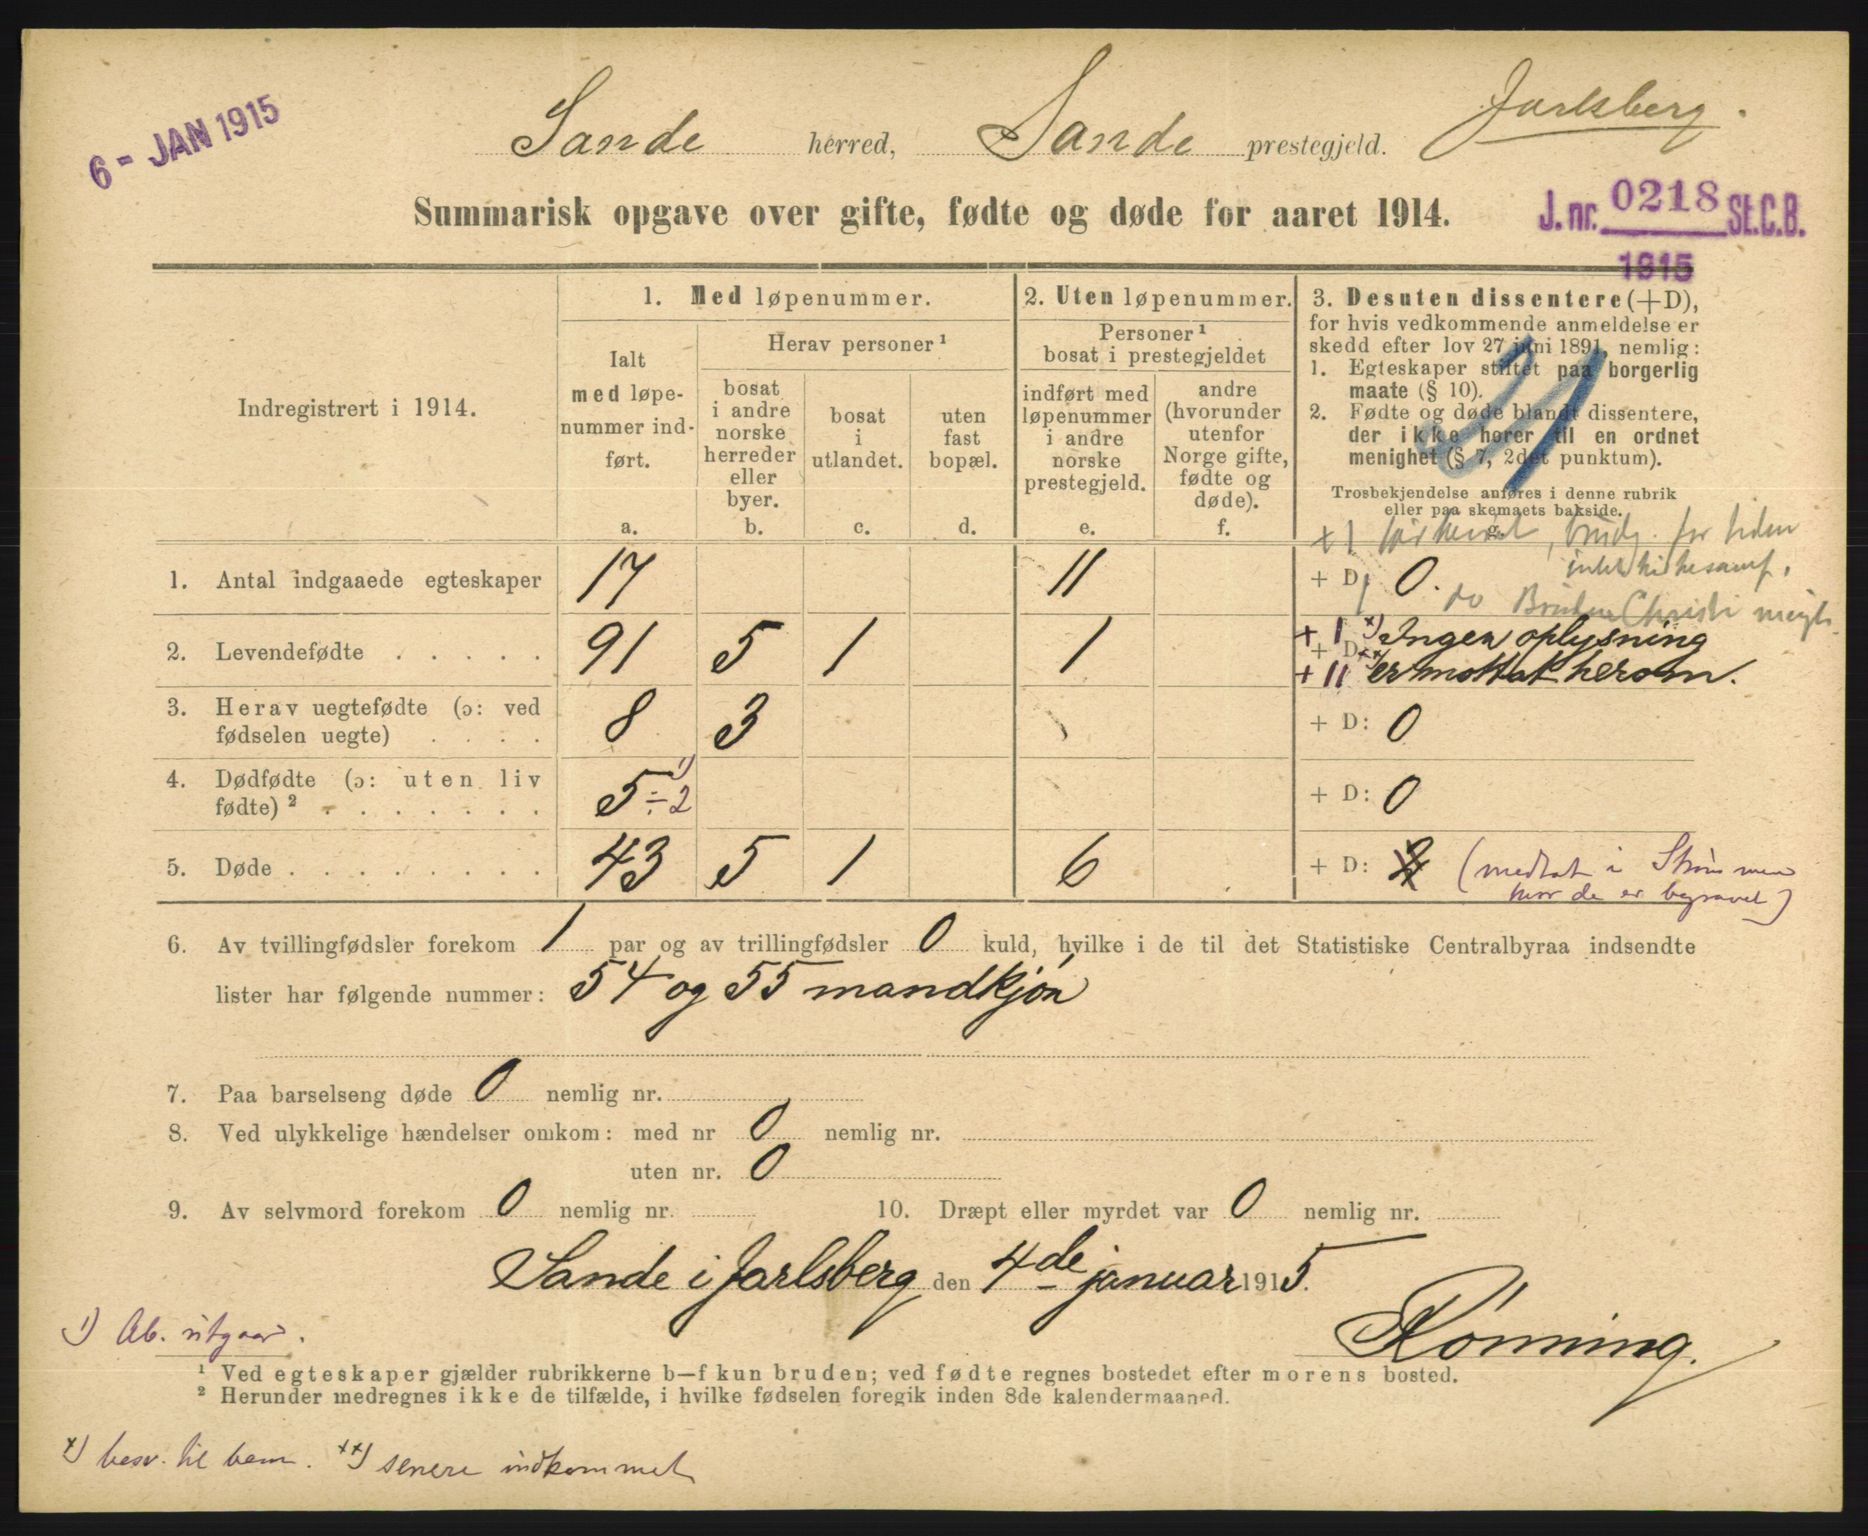 6 - JAN 1915
Sande herred, Sande prestegjeld. Jarlsberg.
Summarisk opgave over gifte, fødte og døde for aaret 1914.
J. nr. 0218 St.C.B.
1915
Indregistrert i 1914.
1. Med løpenummer.
Ialt
med løpe-
nummer ind-
ført.
a.
Herav personer ¹
bosat
i andre
norske
herreder
eller
byer.
b.
bosat
i
utlandet.
c.
uten
fast
bopæl.
d.
2. Uten løpenummer.
Personer ¹
bosat i prestegjeldet
indført med
løpenummer
i andre
norske
prestegjeld.
e.
andre
(hvorunder
utenfor
Norge gifte,
fødte og
døde).
f.
3. Desuten dissentere (+D),
for hvis vedkommende anmeldelse er
skedd efter lov 27 juni 1891, nemlig:
1. Egteskaper stiftet paa borgerlig
maate (§ 10).
2. Fødte og døde blandt dissentere,
der ikke hører til en ordnet
menighet (§ 7, 2det punktum).
Trosbekjendelse anføres i denne rubrik
eller paa skemaets bakside.
g.
for tiden
1. Antal indgaaede egteskaper 17 11 + D: 0.
do Christi
2. Levendefødte . . . . . 91 5 1 1 + D:
+ 1 ×) Ingen oplysning
+ 11 ××) er mottat herom.
3. Herav uegtefødte (ɔ: ved
fødselen uegte) . . . . 8 3 + D: 0
4. Dødfødte (ɔ: uten liv
fødte) ² . . . . . . . 5 ÷ 2 ¹) + D: 0
5. Døde . . . . . . . . 43 5 1 6 + D: 2 (medtat i Strømmen
hvor de er begravet)
6. Av tvillingfødsler forekom 1 par og av trillingfødsler 0 kuld, hvilke i de til det Statistiske Centralbyraa indsendte
lister har følgende nummer: 54 og 55 mandkjøn
7. Paa barselseng døde 0 nemlig nr.
8. Ved ulykkelige hændelser omkom: med nr 0 nemlig nr.
uten nr. 0
9. Av selvmord forekom 0 nemlig nr. 10. Dræpt eller myrdet var 0 nemlig nr.
Sande i Jarlsberg den 4de januar 1915.
Rönning.
¹) Ab. utgaar.
¹ Ved egteskaper gjælder rubrikkerne b—f kun bruden; ved fødte regnes bostedet efter morens bosted.
² Herunder medregnes ikke de tilfælde, i hvilke fødselen foregik inden 8de kalendermaaned.
×) besv. til bem. ××) senere indkommet